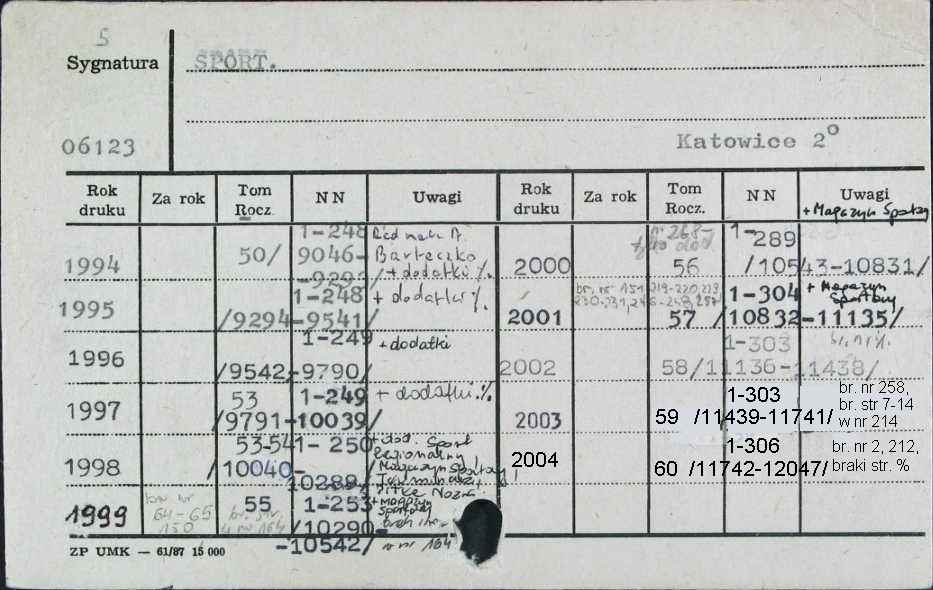 5
Sygnatura SPORT.
06123 Katowice 2°
Rok druku Za rok Tom Rocz. NN Uwagi Rok druku Za rok Tom Rocz. NN Uwagi
+ Magazyn Sportowy
1994 50/ 1-248 9046-9293/ Barteczko + dodatki %
1995 1-248 /9294-9541/ + dodatki %
1996 1-249 /9542-9790/ + dodatki
1997 53 1-249 /9791-10039/ + dodatki %
1998 53-54 1-250 /10040-10289/ + dod. Sport Regionalny
1999 br. nr 64-65 130 55 1-253 /10290-10542/ + Magazyn Sportowy w nr 164
2000 nr 268- 56 1-289 /10543-10831/
2001 57 1-304 /10832-11135/ + Magazyn Sportowy
2002 58/ 1-303 11136-11438/
2003 59 1-303 /11439-11741/ br. nr 258, br. str 7-14 w nr 214
2004 60 1-306 /11742-12047/ br. nr 2, 212, braki str. %
ZP UMK — 61/87 15 000